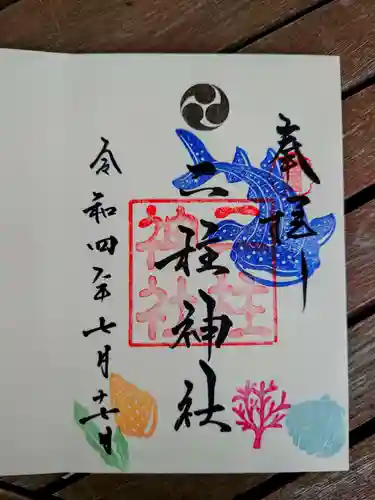 奉拝
二柱神社
二柱神社
令和四年七月十七日